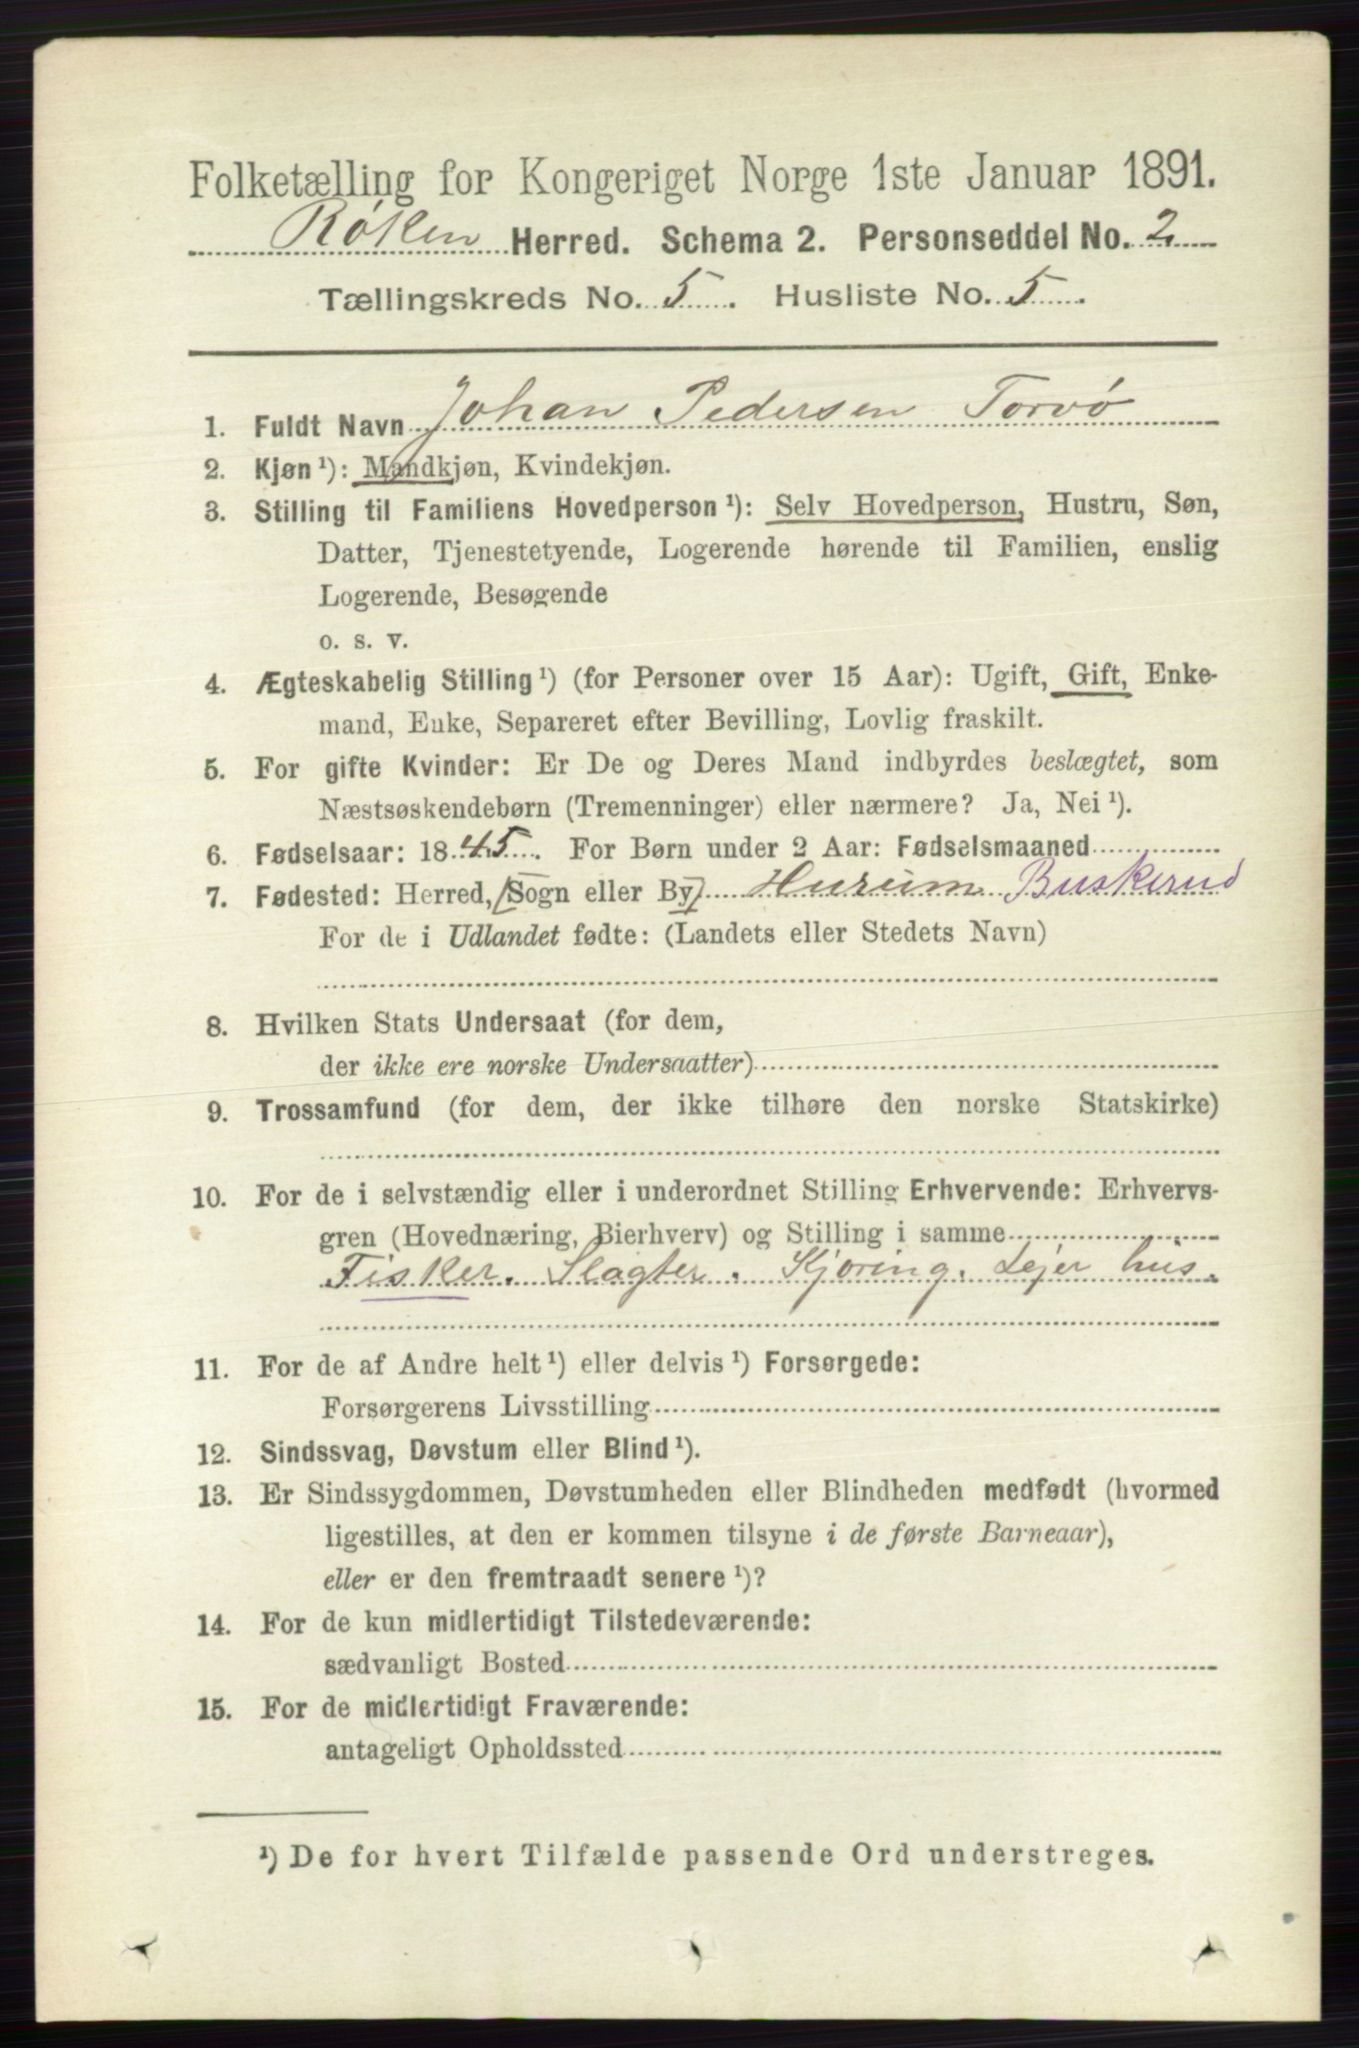 Folketælling for Kongeriget Norge 1ste Januar 1891.
Røken Herred. Schema 2. Personseddel No. 2
Tællingskreds No. 5. Husliste No. 5.
1. Fuldt Navn Johan Pedersen Torvø
2. Kjøn¹): Mandkjøn, Kvindekjøn.
3. Stilling til Familiens Hovedperson¹): Selv Hovedperson, Hustru, Søn,
Datter, Tjenestetyende, Logerende hørende til Familien, enslig
Logerende, Besøgende
o. s. v.
4. Ægteskabelig Stilling¹) (for Personer over 15 Aar): Ugift, Gift, Enke-
mand, Enke, Separeret efter Bevilling, Lovlig fraskilt.
5. For gifte Kvinder: Er De og Deres Mand indbyrdes beslægtet, som
Næstsøskendebørn (Tremenninger) eller nærmere? Ja, Nei¹).
6. Fødselsaar: 1845. For Børn under 2 Aar: Fødselsmaaned
7. Fødested: Herred, [Sogn eller By] Hurum Buskerud
For de i Udlandet fødte: (Landets eller Stedets Navn)
8. Hvilken Stats Undersaat (for dem,
der ikke ere norske Undersaatter)
9. Trossamfund (for dem, der ikke tilhøre den norske Statskirke)
10. For de i selvstændig eller i underordnet Stilling Erhvervende: Erhvervs-
gren (Hovednæring, Bierhverv) og Stilling i samme
Fisker. Slagter. Kjøring. Lejer hus.
11. For de af Andre helt¹) eller delvis¹) Forsørgede:
Forsørgerens Livsstilling
12. Sindssvag, Døvstum eller Blind¹).
13. Er Sindssygdommen, Døvstumheden eller Blindheden medfødt (hvormed
ligestilles, at den er kommen tilsyne i de første Barneaar),
eller er den fremtraadt senere¹)?
14. For de kun midlertidigt Tilstedeværende:
sædvanligt Bosted
15. For de midlertidigt Fraværende:
antageligt Opholdssted
¹) De for hvert Tilfælde passende Ord understreges.